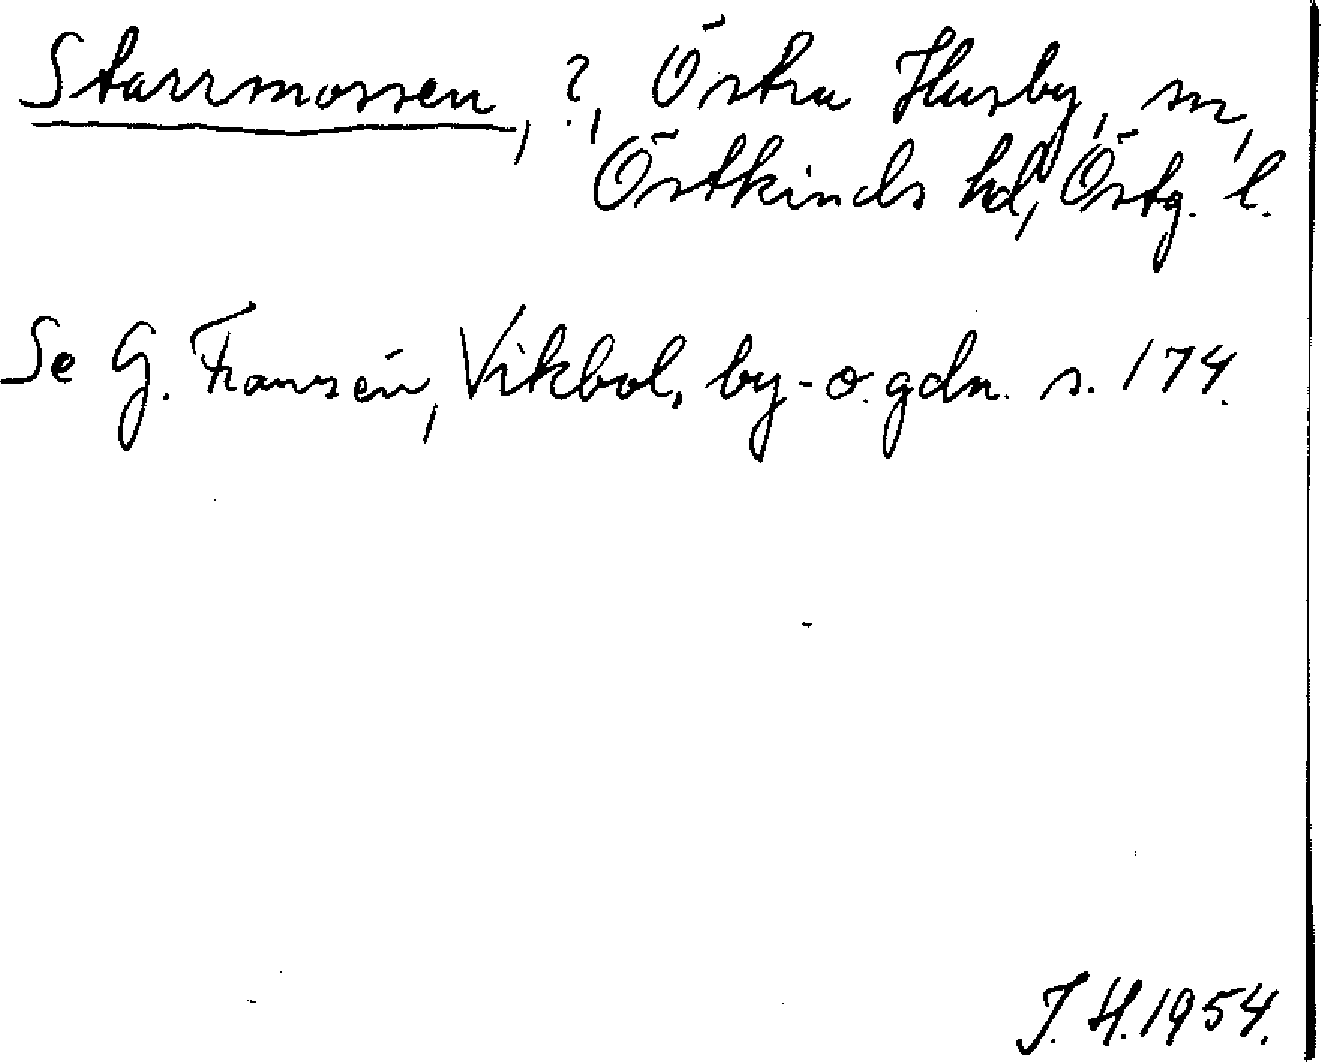 Starrmossen, ?, Östra Husby, sn,
Östkinds hd, Östg. l.
Se G. Franzén, Vikbol. by- o. gdn. s. 174.
J. H. 1954.